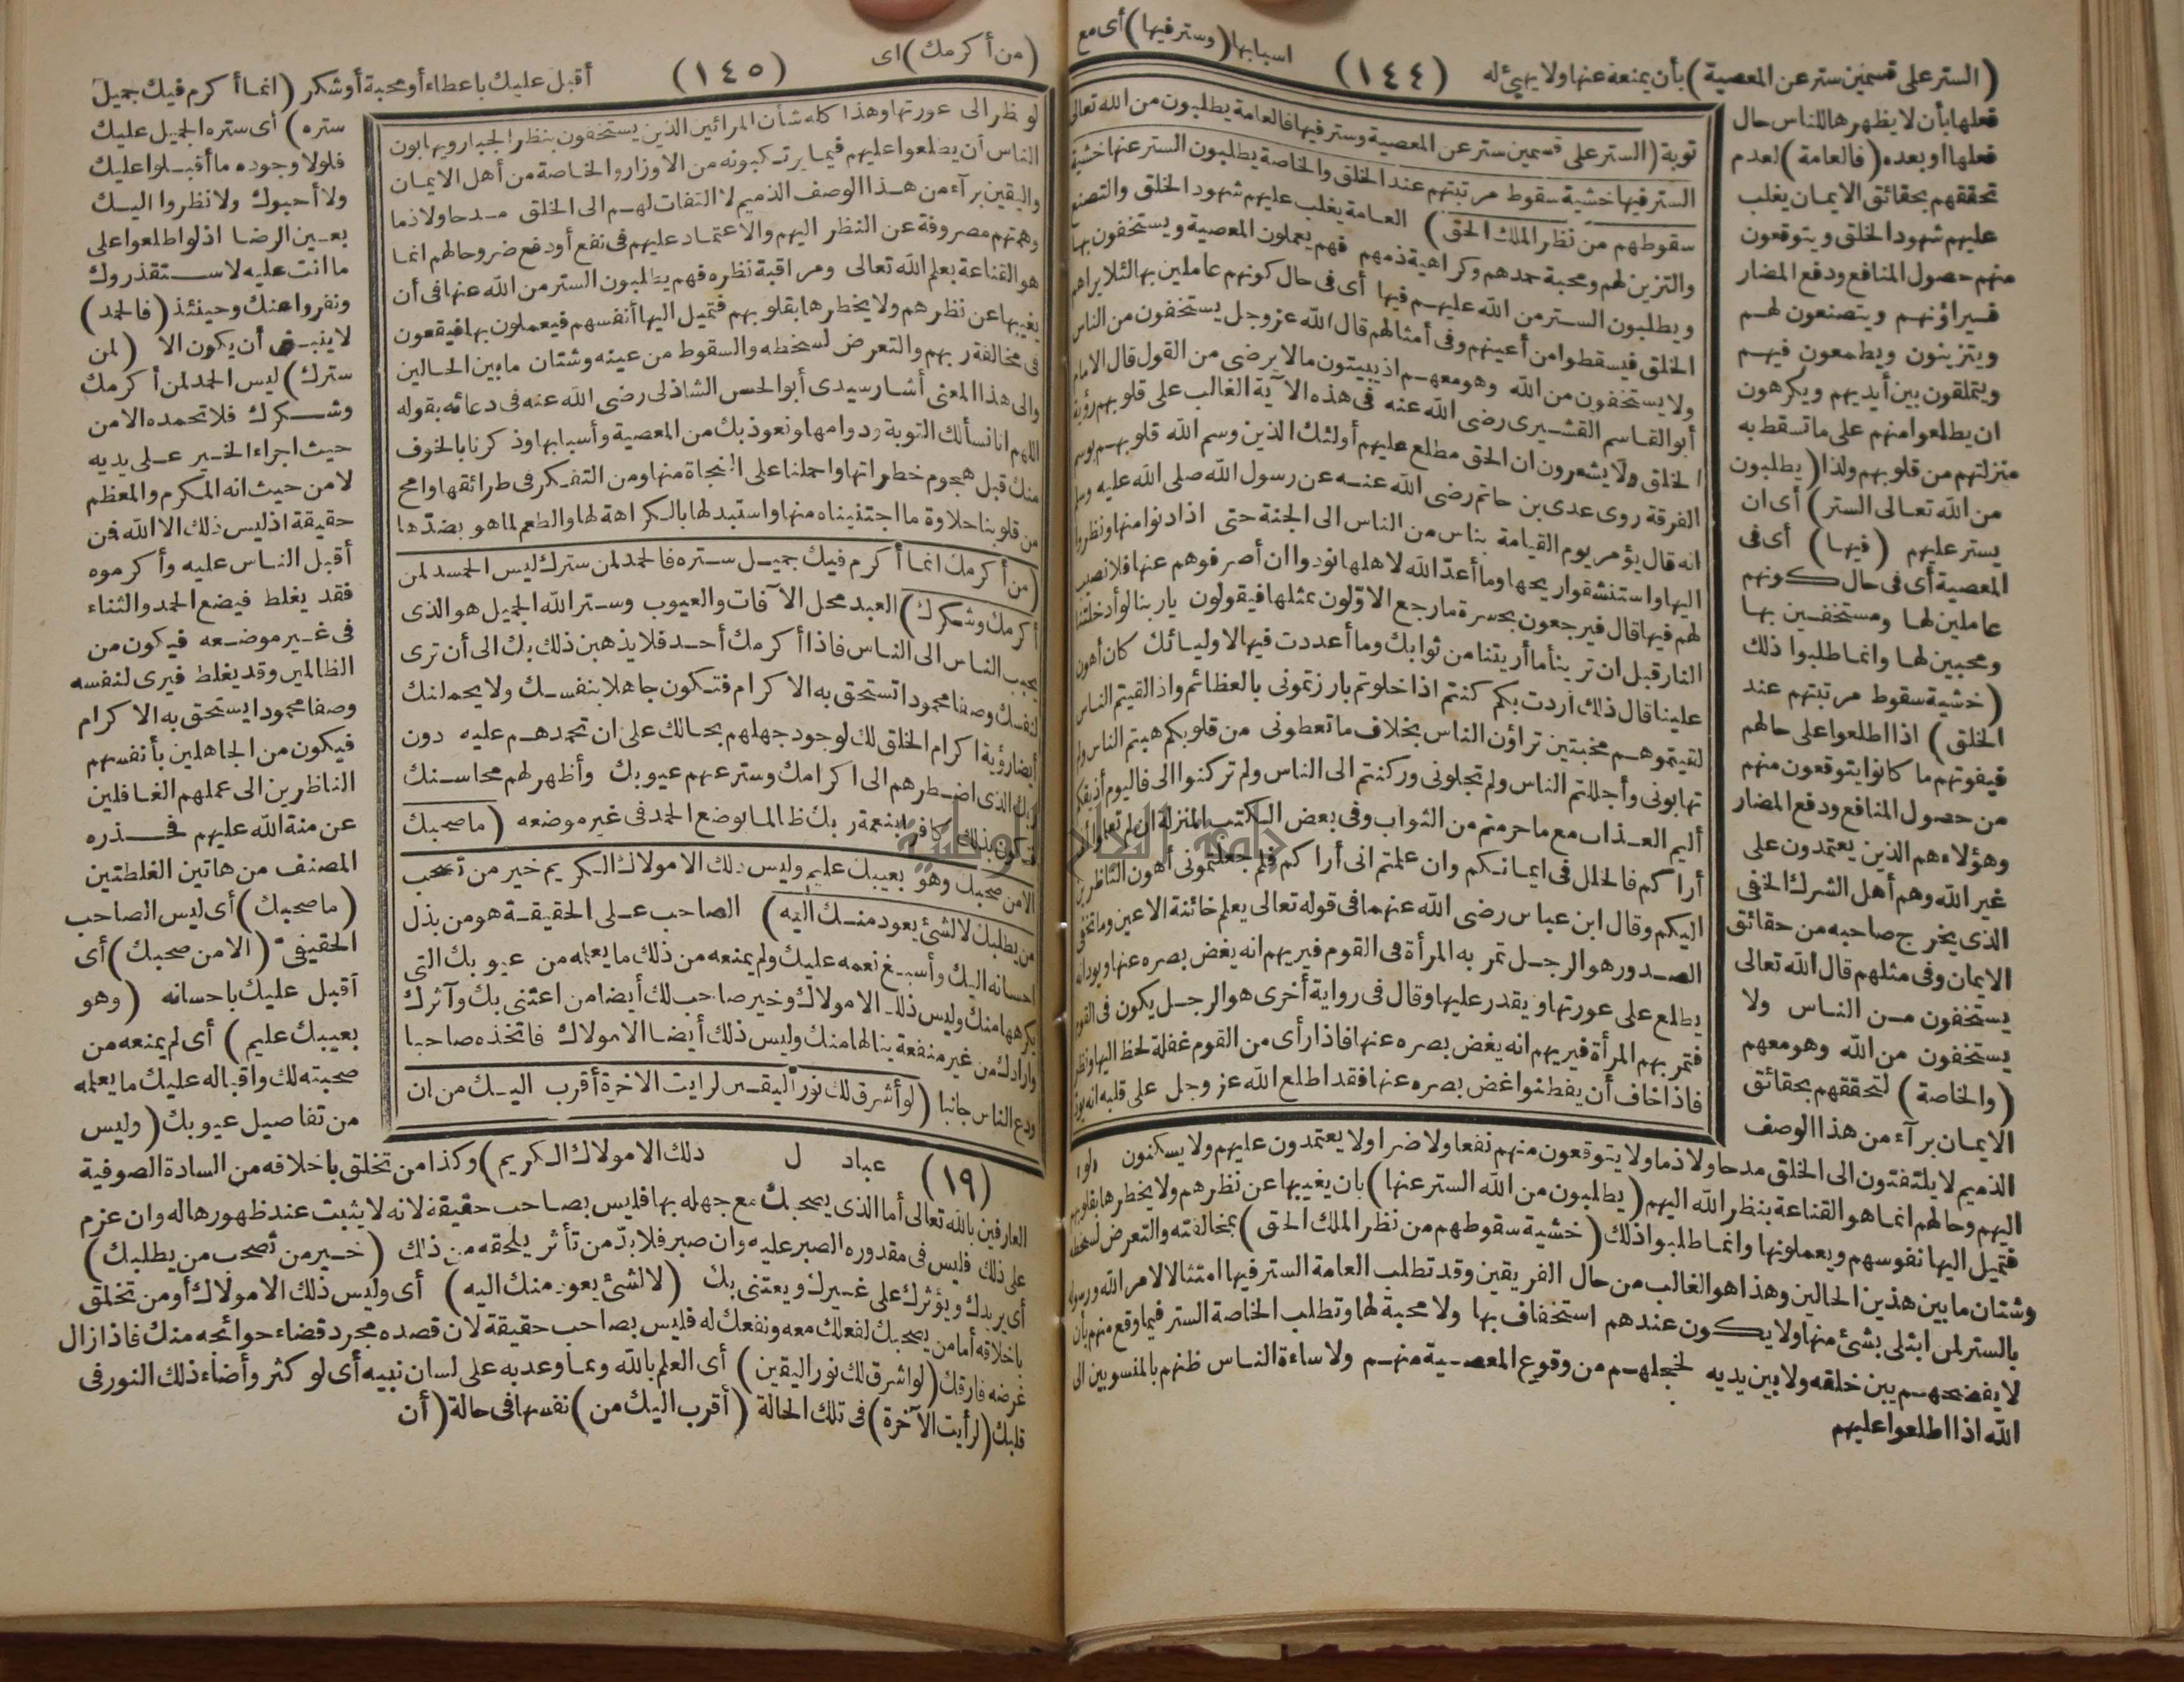 (الستر على قسمين ستر عن المعصية) بأن يمنعه عنها ولا يهيئ له
(١٤٤)
اسبابها (وستر فيها) أى مع
فعلها بأن لا يظهرها للناس حال
فعلها او بعده (فالعامة) لعدم
تحققهم بحقائق الايمان يغلب
عليهم شهود الخلق ويتوقعون
منهم حصول المنافع ودفع المضار
فيراؤنهم ويتصنعون لهم
ويتزينون ويطمعون فيهم
ويتملقون بين أيديهم ويكرهون
ان يطلعوا منهم على ما تسقط به
منزلتهم من قلوبهم ولذا (يطلبون
من الله تعالى الستر) أى ان
يستر عليهم (فيها) أى فى
المعصية أى فى حال كونهم
عاملين لها ومستخفين بها
ومحبين لها وانما طلبوا ذلك
(خشية سقوط مرتبتهم عند
الخلق) اذا اطلعوا على حالهم
فيفوتهم ما كانوا يتوقعون منهم
من حصول المنافع ودفع المضار
وهؤلاء هم الذين يعتمدون على
غير الله وهم أهل الشرك الخفى
الذى يخرج صاحبه من حقائق
الايمان وفى مثلهم قال الله تعالى
يستخفون من الناس ولا
يستخفون من الله وهو معهم
(والخاصة) لتحققهم بحقائق
الايمان برآء من هذا الوصف
توبة (الستر على قسمين ستر عن المعصية وستر فيها فالعامة يطلبون من الله تعالى
الستر فيها خشية سقوط مرتبتهم عند الخلق والخاصة يطلبون الستر عنها خشية
سقوطهم من نظر الملك الحق) العامة يغلب عليهم شهود الخلق والتصنع
والتزين لهم ومحبة حمدهم وكراهية ذمهم فهم يعملون المعصية ويستخفون بها
ويطلبون الستر من الله عليهم فيها أى فى حال كونهم عاملين بها لئلا يراهم
الخلق فيسقطوا من أعينهم وفى أمثالهم قال الله عز وجل يستخفون من الناس
ولا يستخفون من الله وهو معهم اذ يبيتون ما لا يرضى من القول قال الامام
أبو القاسم القشيرى رضى الله عنه فى هذه الآية الغالب على قلوبهم رؤية
الخلق ولا يشعرون ان الحق مطلع عليهم أولئك الذين وسم الله قلوبهم بوسم
الفرقة روى عدى بن حاتم رضى الله عنه عن رسول الله صلى الله عليه وسلم
انه قال يؤمر يوم القيامة بناس من الناس الى الجنة حتى اذا دنوا منها ونظروا
اليها واستنشقوا ريحها وما أعد الله لاهلها نودوا ان أصرفوهم عنها فلا نصيب
لهم فيها قال فيرجعون بحسرة ما رجع الاولون بمثلها فيقولون ياربنا لو أدخلتنا
النار قبل ان ترينا ما أريتنا من ثوابك وما أعددت فيها لاوليائك كان أهون
علينا قال ذلك أردت بكم كنتم اذا خلوتم بارزتمونى بالعظائم واذا لقيتم الناس
لقيتموهم مخبتين تراؤن الناس بخلاف ما تعطونى من قلوبكم هبتم الناس ولم
تهابونى وأجللتم الناس ولم تجلونى وركنتم الى الناس ولم تركنوا الى فاليوم أذيقكم
أليم العذاب مع ما حرمتم من الثواب وفى بعض الكتب المنزلة ان لم تعلموا أنى
أراكم فالخلل فى ايمانكم وان علمتم انى أراكم فلم جعلتمونى أهون الناظرين
اليكم وقال ابن عباس رضى الله عنهما فى قوله تعالى يعلم خائنة الاعين وما تخفى
الصدور هو الرجل تمر به المرأة فى القوم فيريهم انه يغض بصره عنها ويود أنه
يطلع على عورتها ويقدر عليها وقال فى رواية أخرى هو الرجل يكون فى القوم
فتمر بهم المرأة فيريهم انه يغض بصره عنها فاذا رأى من القوم غفلة لحظ اليها ونظر
فاذا خاف أن يفطنوا غض بصره عنها فقد اطلع الله عز وجل على قلبه انه يود
الذميم لا يلتفتون الى الخلق مدحا ولا ذما ولا يتوقعون منهم نفعا ولا ضرا ولا يعتمدون عليهم ولا يسكنون
اليهم وحالهم انما هو القناعة بنظر الله اليهم (يطلبون من الله الستر عنها) بان يغيبها عن نظرهم ولا يخطرها بقلوبهم
فتميل اليها نفوسهم ويعملونها وانما طلبوا ذلك (خشية سقوطهم من نظر الملك الحق) بمخالفته والتعرض لسخطه
وشتان ما بين هذين الحالين وهذا هو الغالب من حال الفريقين وقد تطلب العامة الستر فيها امتثالا لامر الله ورسوله
بالستر لمن ابتلى بشئ منها ولا يكون عندهم استخفاف بها ولا محبة لها وتطلب الخاصة الستر فيما وقع منهم بأن
لا يفضحهم بين خلقه ولا بين يديه لخجلهم من وقوع المعصية منهم ولا ساءة الناس ظنهم بالمنسوبين الى
الله اذا اطلعوا عليهم
(من أكرمك) اى
(١٤٥)
أقبل عليك باعطاء أو محبة أو شكر (انما أكرم فيك جميل
لو نظر الى عورتها وهذا كله شأن المرائين الذين يستخفون بنظر الجبار ويهابون
الناس أن يطلعوا عليهم فيما يرتكبونه من الاوزار والخاصة من أهل الايمان
واليقين برآء من هذا الوصف الذميم لا التفات لهم الى الخلق مدحا ولا ذما
وهمتهم مصروفة عن النظر اليهم والاعتماد عليهم فى نفع أو دفع ضر وحالهم انما
هو القناعة بعلم الله تعالى ومراقبة نظره فهم يطلبون الستر من الله عنها فى أن
يغيبها عن نظرهم ولا يخطرها بقلوبهم فتميل اليها أنفسهم فيعملون بها فيقعون
فى مخالفة ربهم والتعرض لسخطه والسقوط من عينه وشتان ما بين الحالين
والى هذا المعنى أشار سيدى أبو الحسن الشاذلى رضى الله عنه فى دعائه بقوله
اللهم انا نسألك التوبة ودوامها ونعوذ بك من المعصية وأسبابها وذكرنا بالخوف
منك قبل هجوم خطراتها واحملنا على النجاة منها ومن التفكر فى طرائقها وامح
من قلوبنا حلاوة ما اجتنيناه منها واستبدلها بالكراهة لها والطعم لما هو بضدها
(من أكرمك انما أكرم فيك جميل ستره فالحمد لمن سترك ليس الحمد لمن
أكرمك وشكرك) العبد محل الآفات والعيوب وستر الله الجميل هو الذى
يحبب الناس الى الناس فاذا أكرمك أحد فلا يذهبن ذلك بك الى أن ترى
لنفسك وصفا محمودا تستحق به الاكرام فتكون جاهلا بنفسك ولا يحملنك
أيضا رؤية اكرام الخلق لك لوجود جهلهم بحالك على ان تحمدهم عليه دون
ربك الذى اضطرهم الى اكرامك وستر عنهم عيوبك وأظهر لهم محاسنك
فتكون بذلك كافرا بنعمة ربك ظالما بوضع الحمد فى غير موضعه (ما صحبك
الا من صحبك وهو بعيبك عليم وليس ذلك الا مولاك الكريم خير من تصحب
من يطلبك لا لشئ يعود منك اليه) الصاحب على الحقيقة هو من بذل
احسانه اليك وأسبغ نعمه عليك ولم يمنعه من ذلك ما يعلمه من عيوبك التى
يكرهها منك وليس ذلك الا مولاك وخير صاحب لك أيضا من اعتنى بك وآثرك
وارادك من غير منفعة ينالها منك وليس ذلك أيضا الا مولاك فاتخذه صاحبا
ودع الناس جانبا (لو أشرق لك نور اليقين لرايت الاخرة أقرب اليك من ان
ستره) أى ستره الجميل عليك
فلولا وجوده ما أقبلوا عليك
ولا أحبوك ولا نظروا اليك
بعين الرضا اذ لو اطلعوا على
ما انت عليه لاستقذروك
ونفروا عنك وحينئذ (فالحمد)
لا ينبغى أن يكون الا (لمن
سترك) ليس الحمد لمن أكرمك
وشكرك فلا تحمده الا من
حيث اجراء الخير على يديه
لا من حيث انه المكرم والمعظم
حقيقة اذ ليس ذلك الا الله فمن
أقبل الناس عليه وأكرموه
فقد يغلط فيضع الحمد والثناء
فى غير موضعه فيكون من
الظالمين وقد يغلط فيرى لنفسه
وصفا محمودا يستحق به الاكرام
فيكون من الجاهلين بأنفسهم
الناظرين الى عملهم الغافلين
عن منة الله عليهم فحذره
المصنف من هاتين الغلطتين
(ما صحبك) أى ليس الصاحب
الحقيقى (الا من صحبك) أى
أقبل عليك باحسانه (وهو
بعيبك عليم) أى لم يمنعه من
صحبته لك واقباله عليك ما يعلمه
من تفاصيل عيوبك (وليس
(١٩) عباد ل
ذلك الا مولاك الكريم) وكذا من تخلق باخلاقه من السادة الصوفية
العارفين بالله تعالى أما الذى يصحبك مع جهله بها فليس بصاحب حقيقة لانه لا يثبت عند ظهورها له وان عزم
على ذلك فليس فى مقدوره الصبر عليه وان صبر فلا بد من تأثر يلحقه من ذلك (خير من تصحب من يطلبك)
أى يريدك ويؤثرك على غيرك ويعتنى بك (لا لشئ يعود منك اليه) أى وليس ذلك الا مولاك أو من تخلق
باخلاقه أما من يصحبك لفعلك معه ونفعك له فليس بصاحب حقيقة لان قصده مجرد قضاء حوائجه منك فاذا زال
غرضه فارقك (لو اشرق لك نور اليقين) أى العلم بالله وبما وعد به على لسان نبيه أى لو كثر وأضاء ذلك النور فى
قلبك (لرأيت الآخرة) فى تلك الحالة (أقرب اليك من) نفسها فى حالة (أن